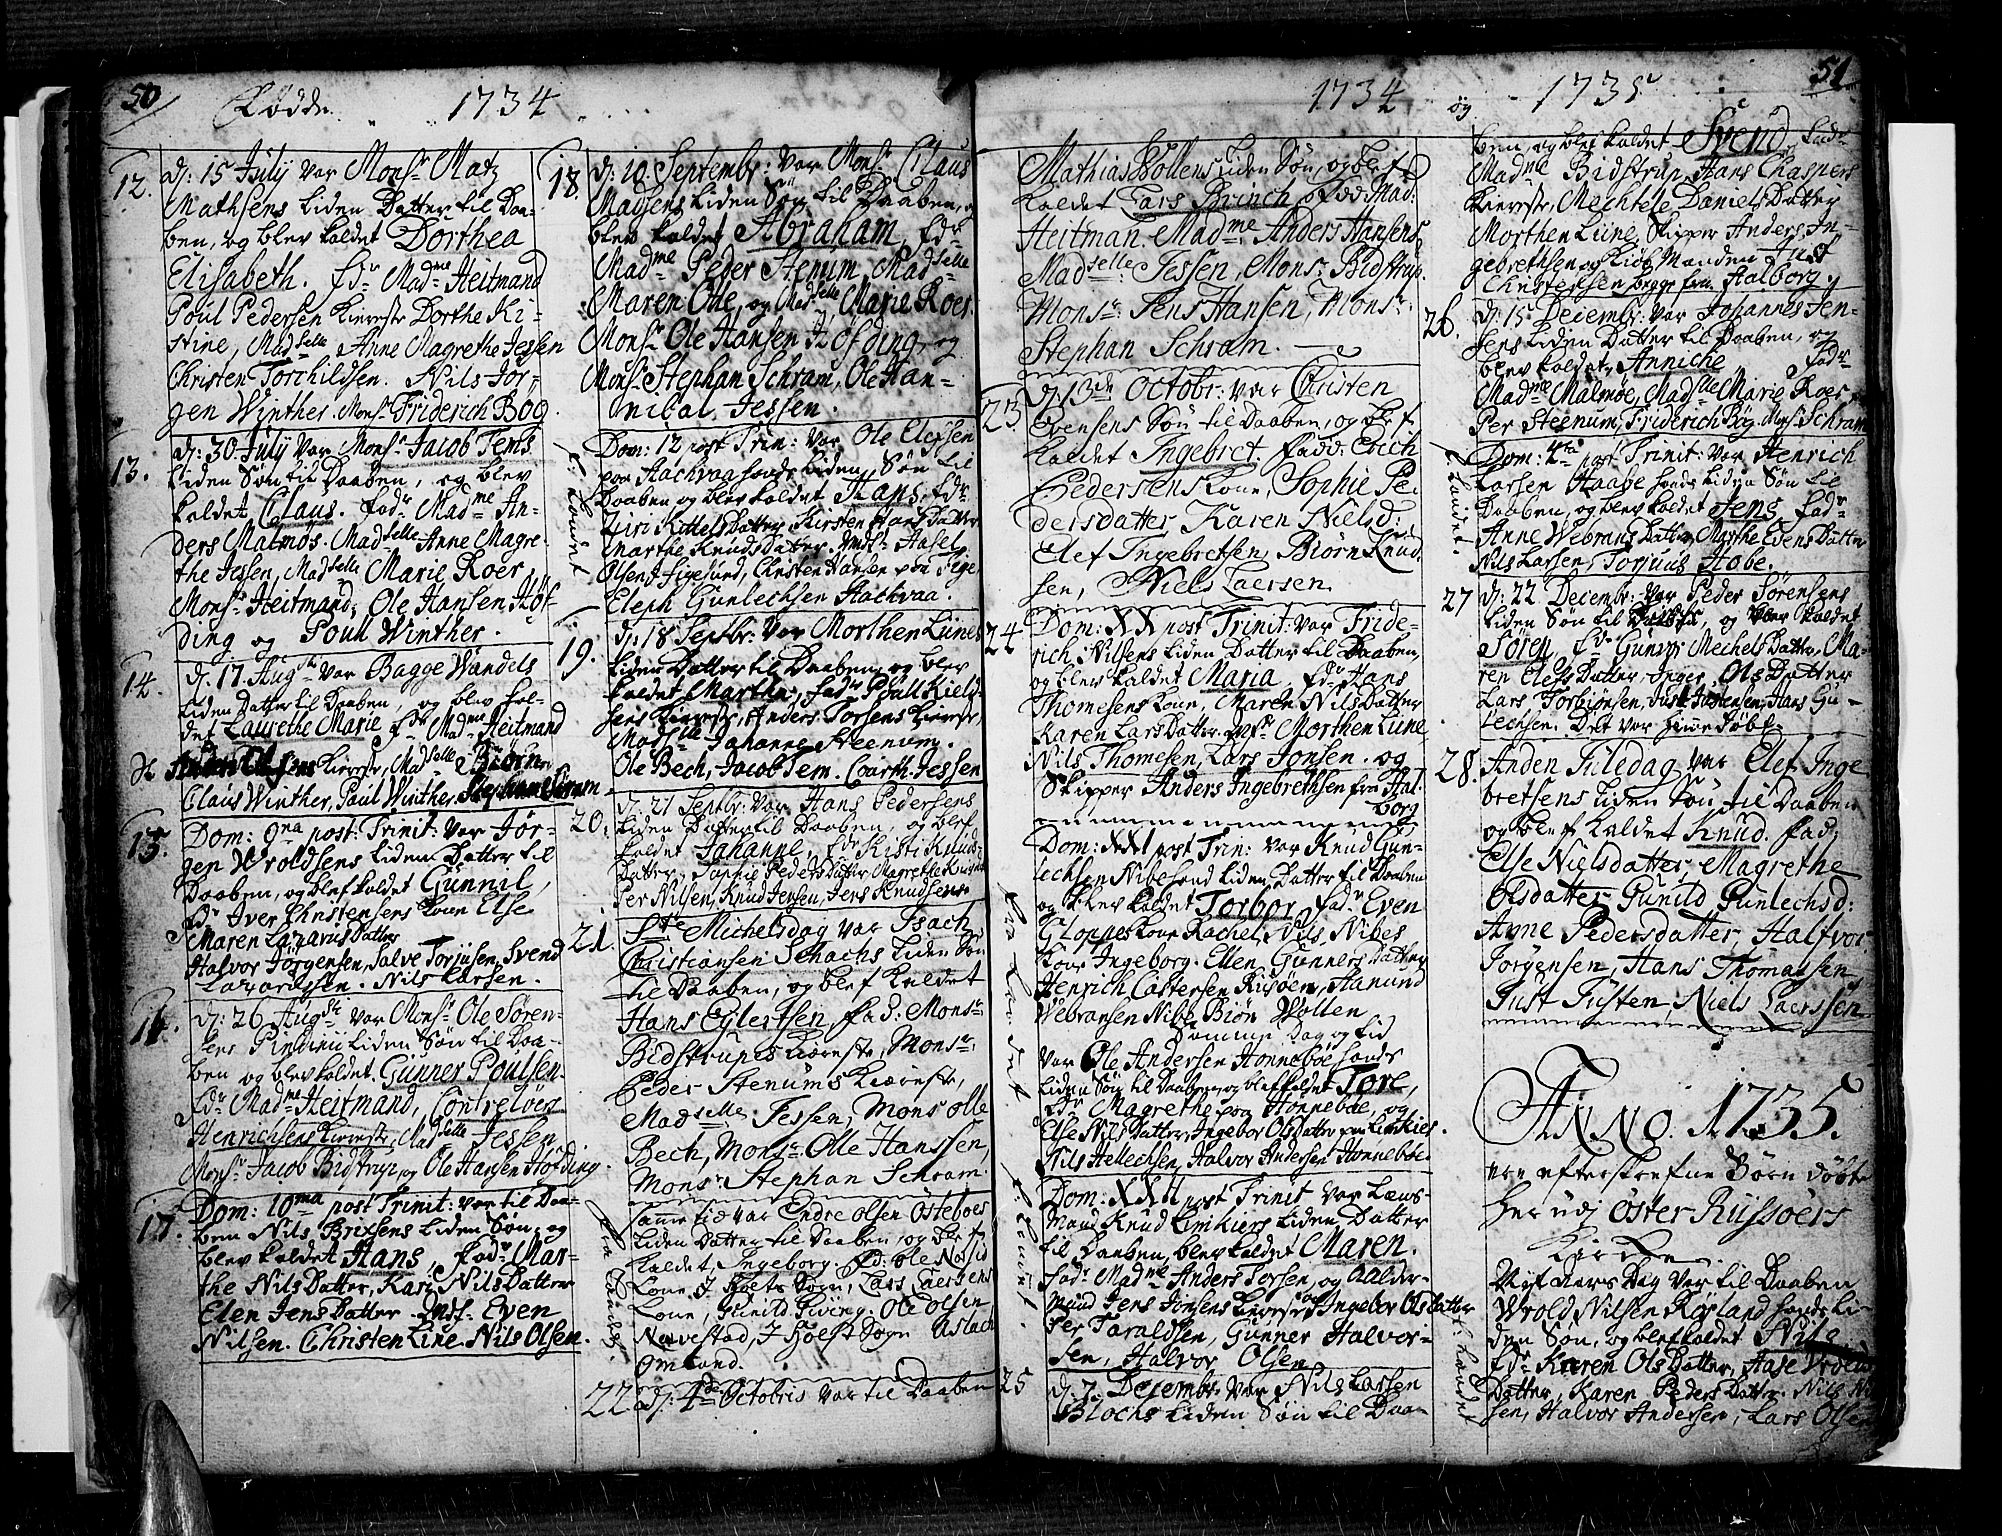 50
Fødde 1734
12.
d: 15 July var Monsr Matz
Mathsens liden Datter til Daa-
ben, og blev kaldet Dorthea
Elisabeth. fdr Madme Heitmand
Poul Pedersen Kierrste Dorthe Ki-
stine, Madselle Anne Magrethe Jessen
Christen Torchildsen. Nils Jør-
gen Winther. Monsr Friderich Bog
13.
d: 30 July var Monsr Jacob Tems
liden Søn til Daaben, og blev
kaldet Claus. fadr Madme An-
ders Malmøs. Madselle Anne Magre-
the Jessen, Madselle Marie Roer,
Monsr Heitmand, Ole Hansen Høf-
ding og Poull Winther.
14.
d: 17 Augsti var Bagge Wandels
liden Datter til Daaben, og blev kal-
det Laurethe Marie fdr Madme Heitmand
Kierrste, Madselle Biørn
Claus Winther, Paul Winther, Stephan Schram
15.
Dom: 9na post: Trinit: var Jør-
gen Wroldsens liden Datter til
Daaben, og blef kaldet Gunnil,
fdr Iver Christensens kone Else
Maren Lazarus Datter
Halvor Jørgensen, Salve Torjusen, Svend
Lazarussen. Nils Larsen.
16.
d: 26 Augsti var Monsr Ole Søren-
sens liden Søn til Daa-
ben og blev kaldet. Gunner Poulsen.
fdr Madme Heitmand, Controleur
Henrichsens Kierrste, Madselle Jessen
Monsr Jacob Bidstrup, og Ole Hansen Høfding.
17.
Dom: 10ma post Trinit: var til Daa-
ben Nils Brixsens liden Søn, og
blev kaldet Hans, fadr: Mar-
the Nils Datter, Kari Nils Datter
Elen Jens Datter. Even
Nilsen. Christen Line. Nils Olsen.
18.
d: 10 Septembr: var Monsr Claus
Madsens liden Søn til Daaben, og
blev kaldet Abraham, fdr
Madme Peder Stenum, Madselle
Maren Ode, og Madselle Marie Roer.
Monsr Ole Hansen Høfding, og
Monsr Stephan Schram, Ole Han-
nibal Jessen.
Dom: 12 post Trin: var Ole Elefsen
paa liden Søn til
Daaben og blev kaldet Hans, fdr
Siri Kittels Datter, Kirsten Hans Datter
Marthe Knuds Datter. Aasel
Olsen Figesund, Christen Hansen paa Fige
Eleph Gunlechsen Halvaa.
19.
d: 18 Septbr: var Morthen Lines
liden Datter til Daaben, og blev
kaldet Marthe, fadr Poull Kiels
sens Kierrste, Anders Torsens Kierrste,
Madselle Johanne Steenum.
Ole Bech, Jacob Tem. Coarth Jessen
20.
d: 21 Septbr: var Hans Pedersens
liden Datter til Daaben, og blef
kaldet Johanne, fdr Kisti Knuds
Datter, Sophie Peders Datter Magrethe Knuds
Per Nilsen, Knud Jensen, Jens Knudsen
21.
Ste Michelsdag var Isach
Christiansen Schachs liden Søn
til Daaben, og blef kaldet
Hans Eylertsen fad: Monsr
Bidstrupes Kiæreste, Monsr:
Peder Stenums Kiæreste,
Madselle: Jessen, Mons olle
Bech, Monsr Olle Hanssen,
Monsr Stephan Schram.
Samme tid var Endre Olsen Østeboes
liden Datter til Daaben, og blef
kaldet, Ingeborg. fd: Ole
kone J Sogn, Lars Laersens
kone, Gunild. Ole Olsen
Navestad, J Holt Sogn Aslach
Omland.
22.
d: 4de Octobris var til Daaben
1734 og 1735
51
Mathias Bollens liden Søn, og blef
kaldet Lars Brinch, fadd Mad:
Heitman. Madme: Anders Hansens
Madselle: Jessen, Monsr Bidstrup.
Monsr: Jens Hansen, Monsr
Stephan Schram.
23.
d: 13de Octobr: var Christen
Evensens Søn til Daaben, og blef
kaldet Ingebret. fadd: Erich
Pedersens kone, Sophie Pe-
dersdatter Karen Nielsd:
Elef Ingebretsen, Biørn Knud-
sen, Niels Laersen
24
Dom: XX post Trinit: var Fride-
rich Nilsens liden Datter til Daaben,
og blev kaldet Maria, fdr Hans
Thomesens kone, Maren Nils Datter
Karen Lars Datter. Morthen Line
Nils Thomesen, Lars Jonsen. og
Skipper Anders Ingebrethsen fra Aal-
borg
Dom: XXI post Trin: var Knud Gun-
lechsen Nibe liden Datter til Daaben
og blev kaldet Torbor fadr Even
Gloppes kone Rachel, Nils Nibes
kone Ingeborg. Ellen Gunners Datter
Henrich Castersen Risøen, Hamund
Webransen Nibe, Biørn Wollen
Samme Dag og tid
var Ole Andersen Honneboe
liden Søn til Daaben og blef kaldet Tore,
fdr Magrethe paa Honneboe, og
Else Nils Datter, Ingebor Ols Datter
Nils Hellechsen, Halvor Andersen Honneboe
Dom: XXII post Trinit var Læns-
mand Knud Limkiers liden Datter
til Daaben, blev kaldet Maren.
fadr Madme Anders Torsen, og Aalder-
mand Jens Jonsens Kierrste, og Ingebor Ols Datter
Per Taraldsen, Gunner Halvor-
sen, Halvor Olsen
25
d: 7 Decembr var Nils Larsen
Blochs liden Søn til Daa-
ben, og blef kaldet Svend, fadr
Madme Bidstrup, Hans Chaspers
Kierrste, Mechtele Daniels Datter
Morthen Line, Skipper Anders In-
gebrethsen og Kiøbmanden Just
Christensen begge fra Aalborg.
26.
d: 15 Decembr: var Johannes Jen-
sens liden Datter til Daaben, og
blev kaldet Anniche fadr
Madme Malmøe, Madselle Marie Roer
Per Steenum, Friderich Bøg, Monsr Schram
Dom: 4ta post Trinit: var Henrich
Larsen Haabe liden Søn til
Daaben, og blev kaldet Jens fadr
Anne Webrans Datter, Marthe Evens Datter
Nils Larsen, Torjuus Hobe.
27
d: 22 Decembr: var Peder Sørensens
liden Søn til, og blev kaldet
Søren, fdr Gunvor Mechels Datter, Ma-
ren Elefs Datter, Inger Ols Datter
Lars Torbiønsen, Just Justensen, Hans Gun-
lechsen. Det var Hiemedøbt.
28.
Anden Juledag var Elef Inge-
bretsens liden Søn til Daaben
og blef kaldet Knud. fad:
Else Nielsdatter, Magrethe
Olsdatter Gunild Gunlechsd:
Anne Pedersdatter, Halfvor
Jørgensen, Hans Thomassen
Just Justen, Niels Laerssen
Anno. 1735.
ere efterskrefne Børn døbte
her udj Øster Riisøers
Kircke.
Nyt Aars Dag var til Daaben
Wrold Nilsen Røsland li-
den Søn, og blef kaldet Nils
fdr Karen Ols Datter, Aase Wrolds
Datter, Karen Peders Datter. Nils Nil-
sen, Halvor Andersen, Lars Olsen